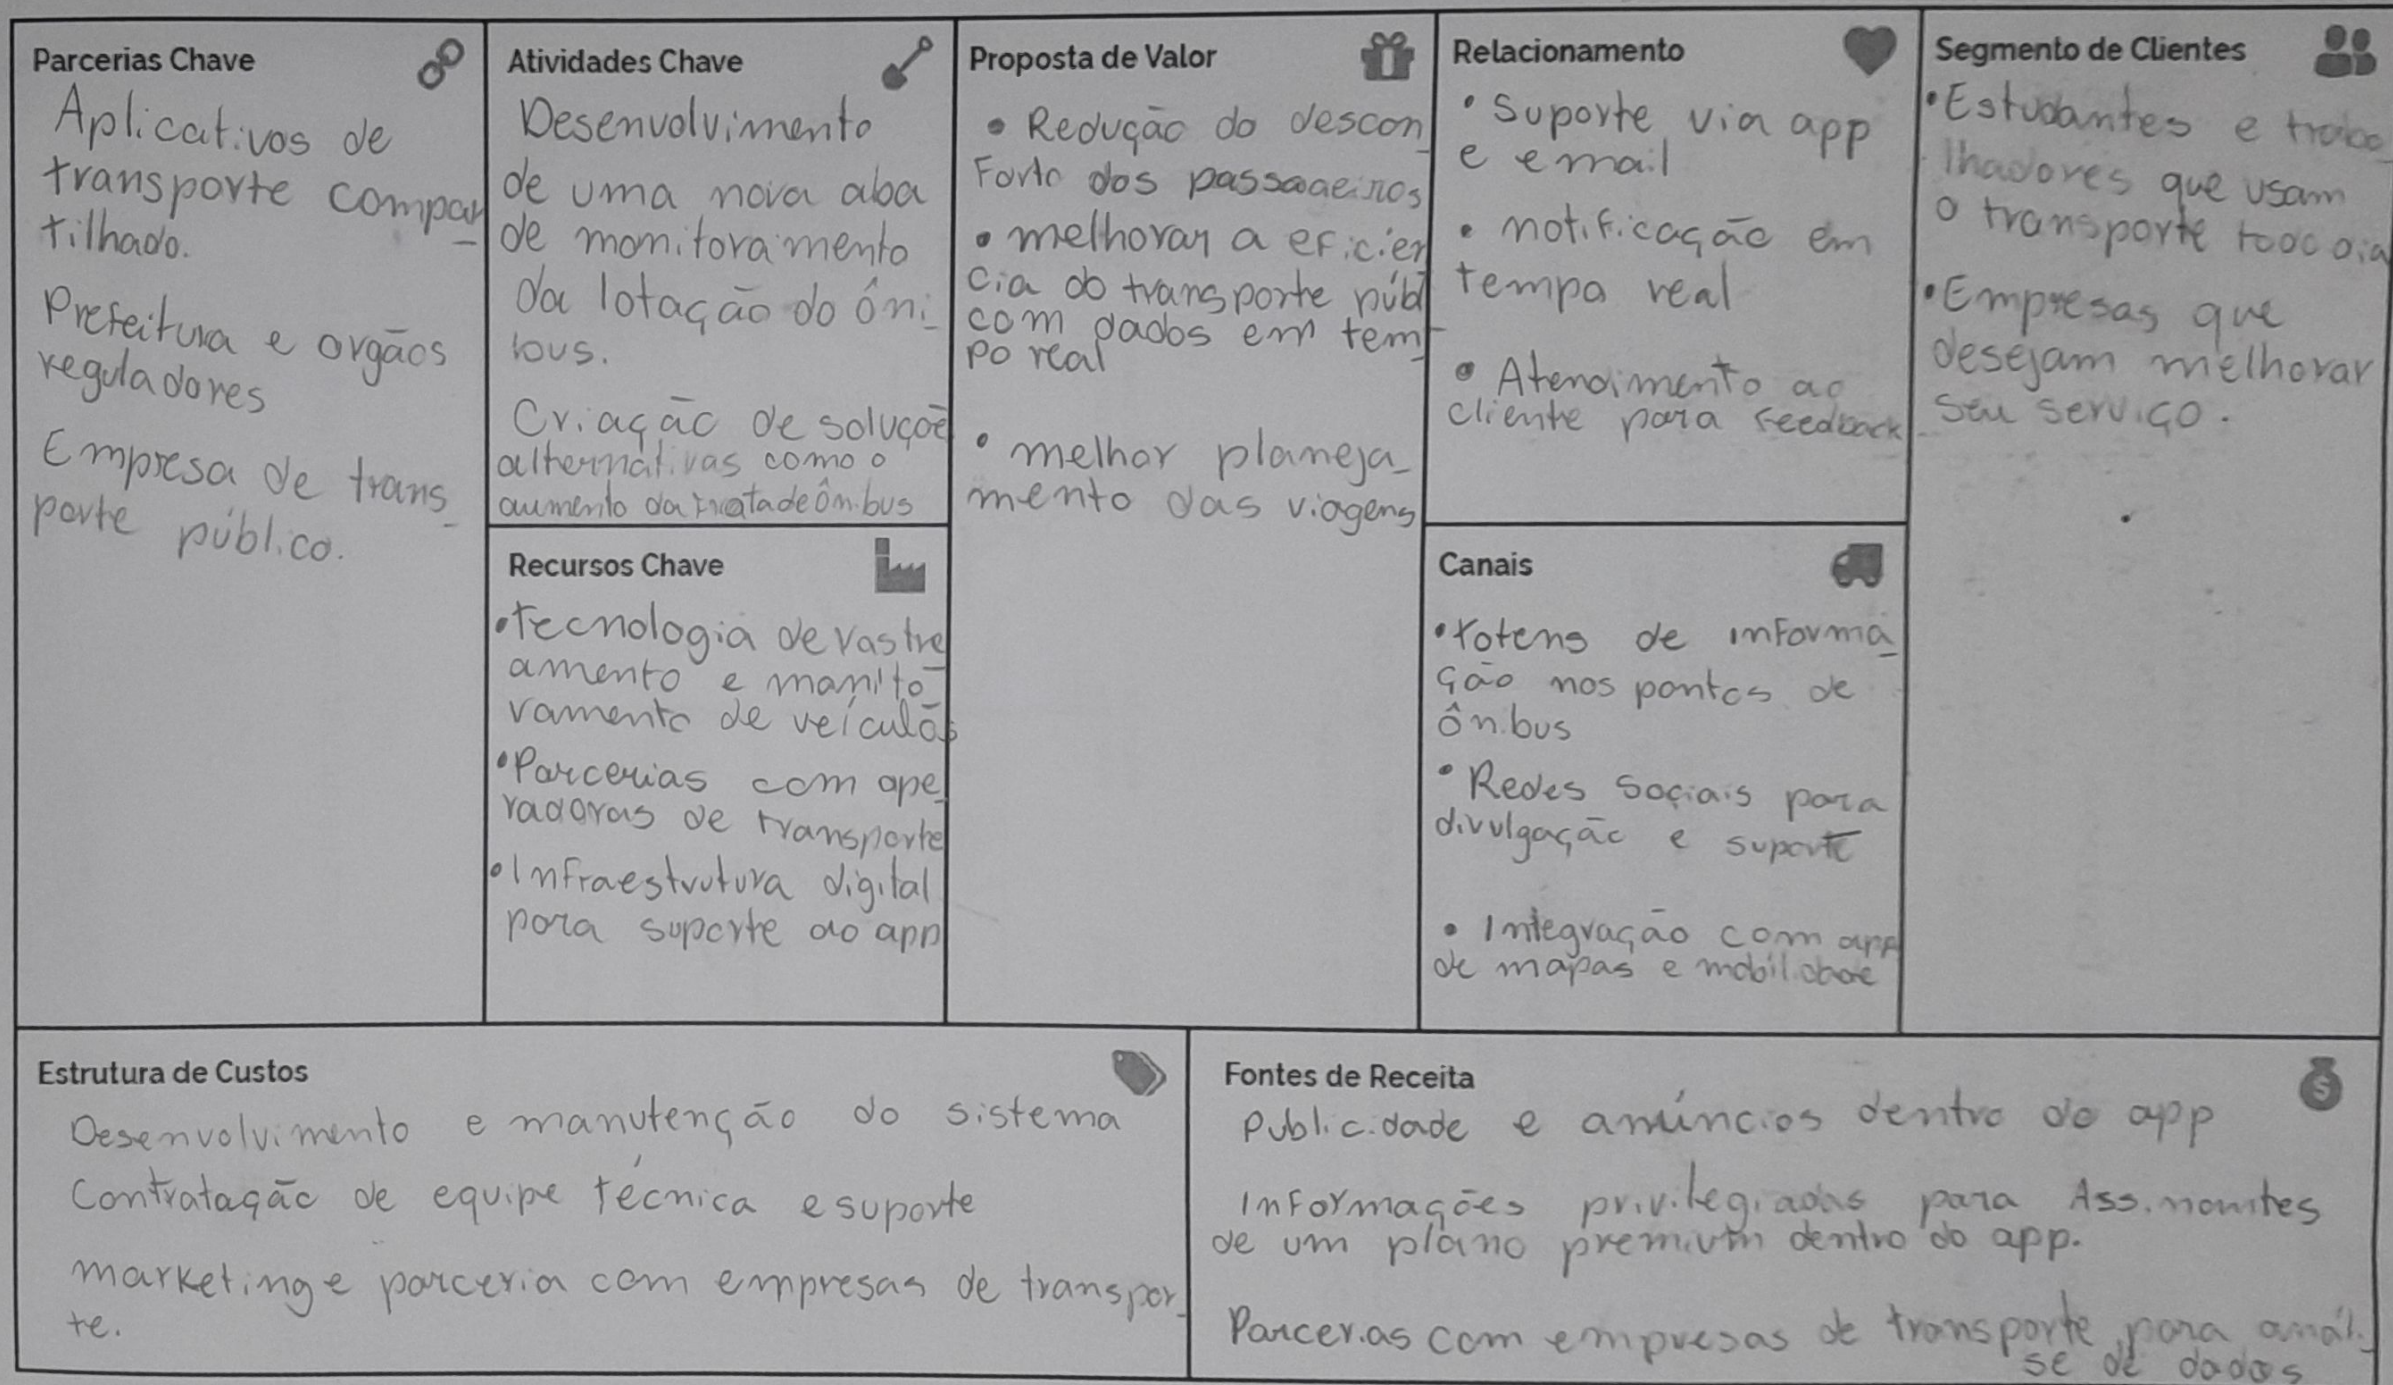 Parcerias Chave
Aplicativos de
transporte compar
tilhado.
Prefeitura e orgãos
reguladores
Empresa de trans_
porte público.
Atividades Chave
Desenvolvimento
de uma nova aba
de monitoramento
da lotação do ôni_
bus.
Criação de soluçoẽ
alternativas como o
aumento da frota de ônibus
Recursos Chave
• Tecnologia de rastre
amento e monito_
ramento de veículos
• Parcerias com ope_
radoras de transporte
• Infraestrutura digital
para suporte ao app
Proposta de Valor
• Redução do descon_
forto dos passageiros
• melhorar a eficiên
cia do transporte públ_
com dados em tem_
po real
• melhor planeja_
mento das viagens
Relacionamento
• Suporte via app
e email
• notificação em
tempo real
• Atendimento ao
cliente para Feedback
Canais
• totens de informa_
ção nos pontos de
ônibus
• Redes Sociais para
divulgação e suporte
• Integração com app
de mapas e mobilidade
Segmento de Clientes
• Estudantes e traba_
lhadores que usam
o transporte todo dia
• Empresas que
desejam melhorar
seu serviço.
Estrutura de Custos
Desenvolvimento e manutenção do sistema
Contratação de equipe técnica e suporte
marketing e parceria com empresas de transpor_
te.
Fontes de Receita
Publicidade e anúncios dentro do app
Informações privilegiadas para Assinantes
de um plano premium dentro do app.
Parcerias com empresas de transporte para análi_
se de dados